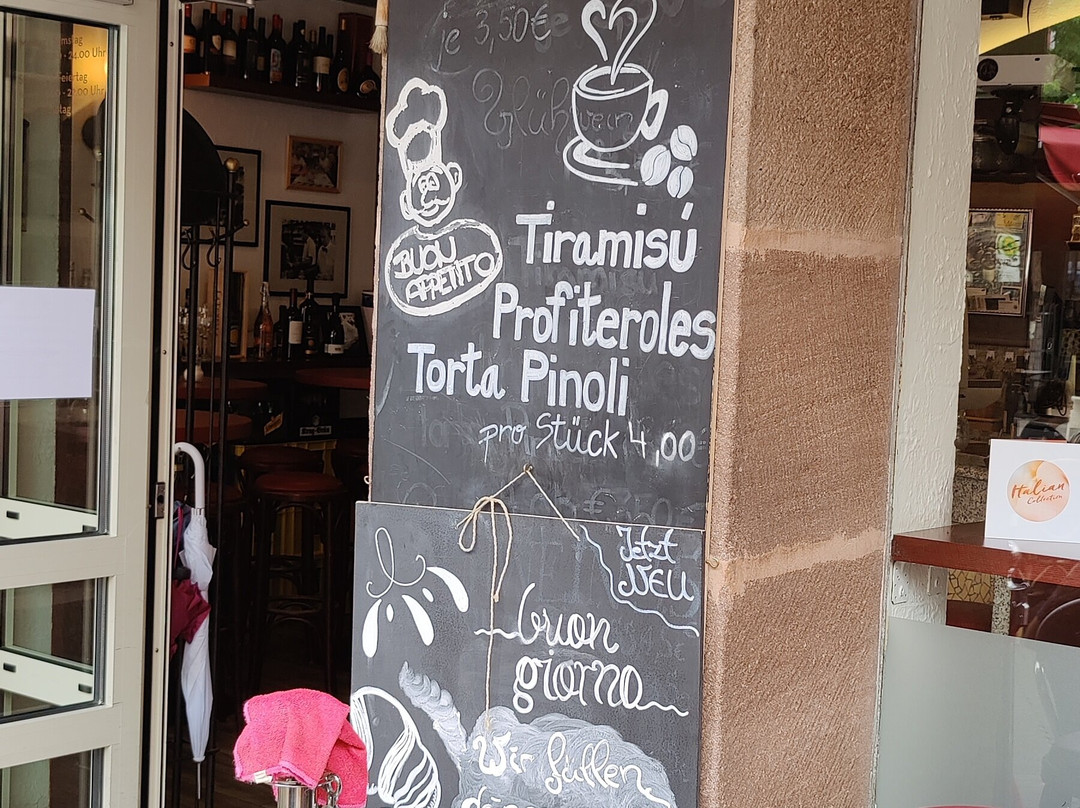 je 3,50€
Glühwein
BUON
APPETITO
Tiramisú
Profiteroles
Torta Pinoli
pro Stück 4,00
Jetzt
NEU
buon
giorno
Wir füllen
Uhr
Uhr
Italian
Collection